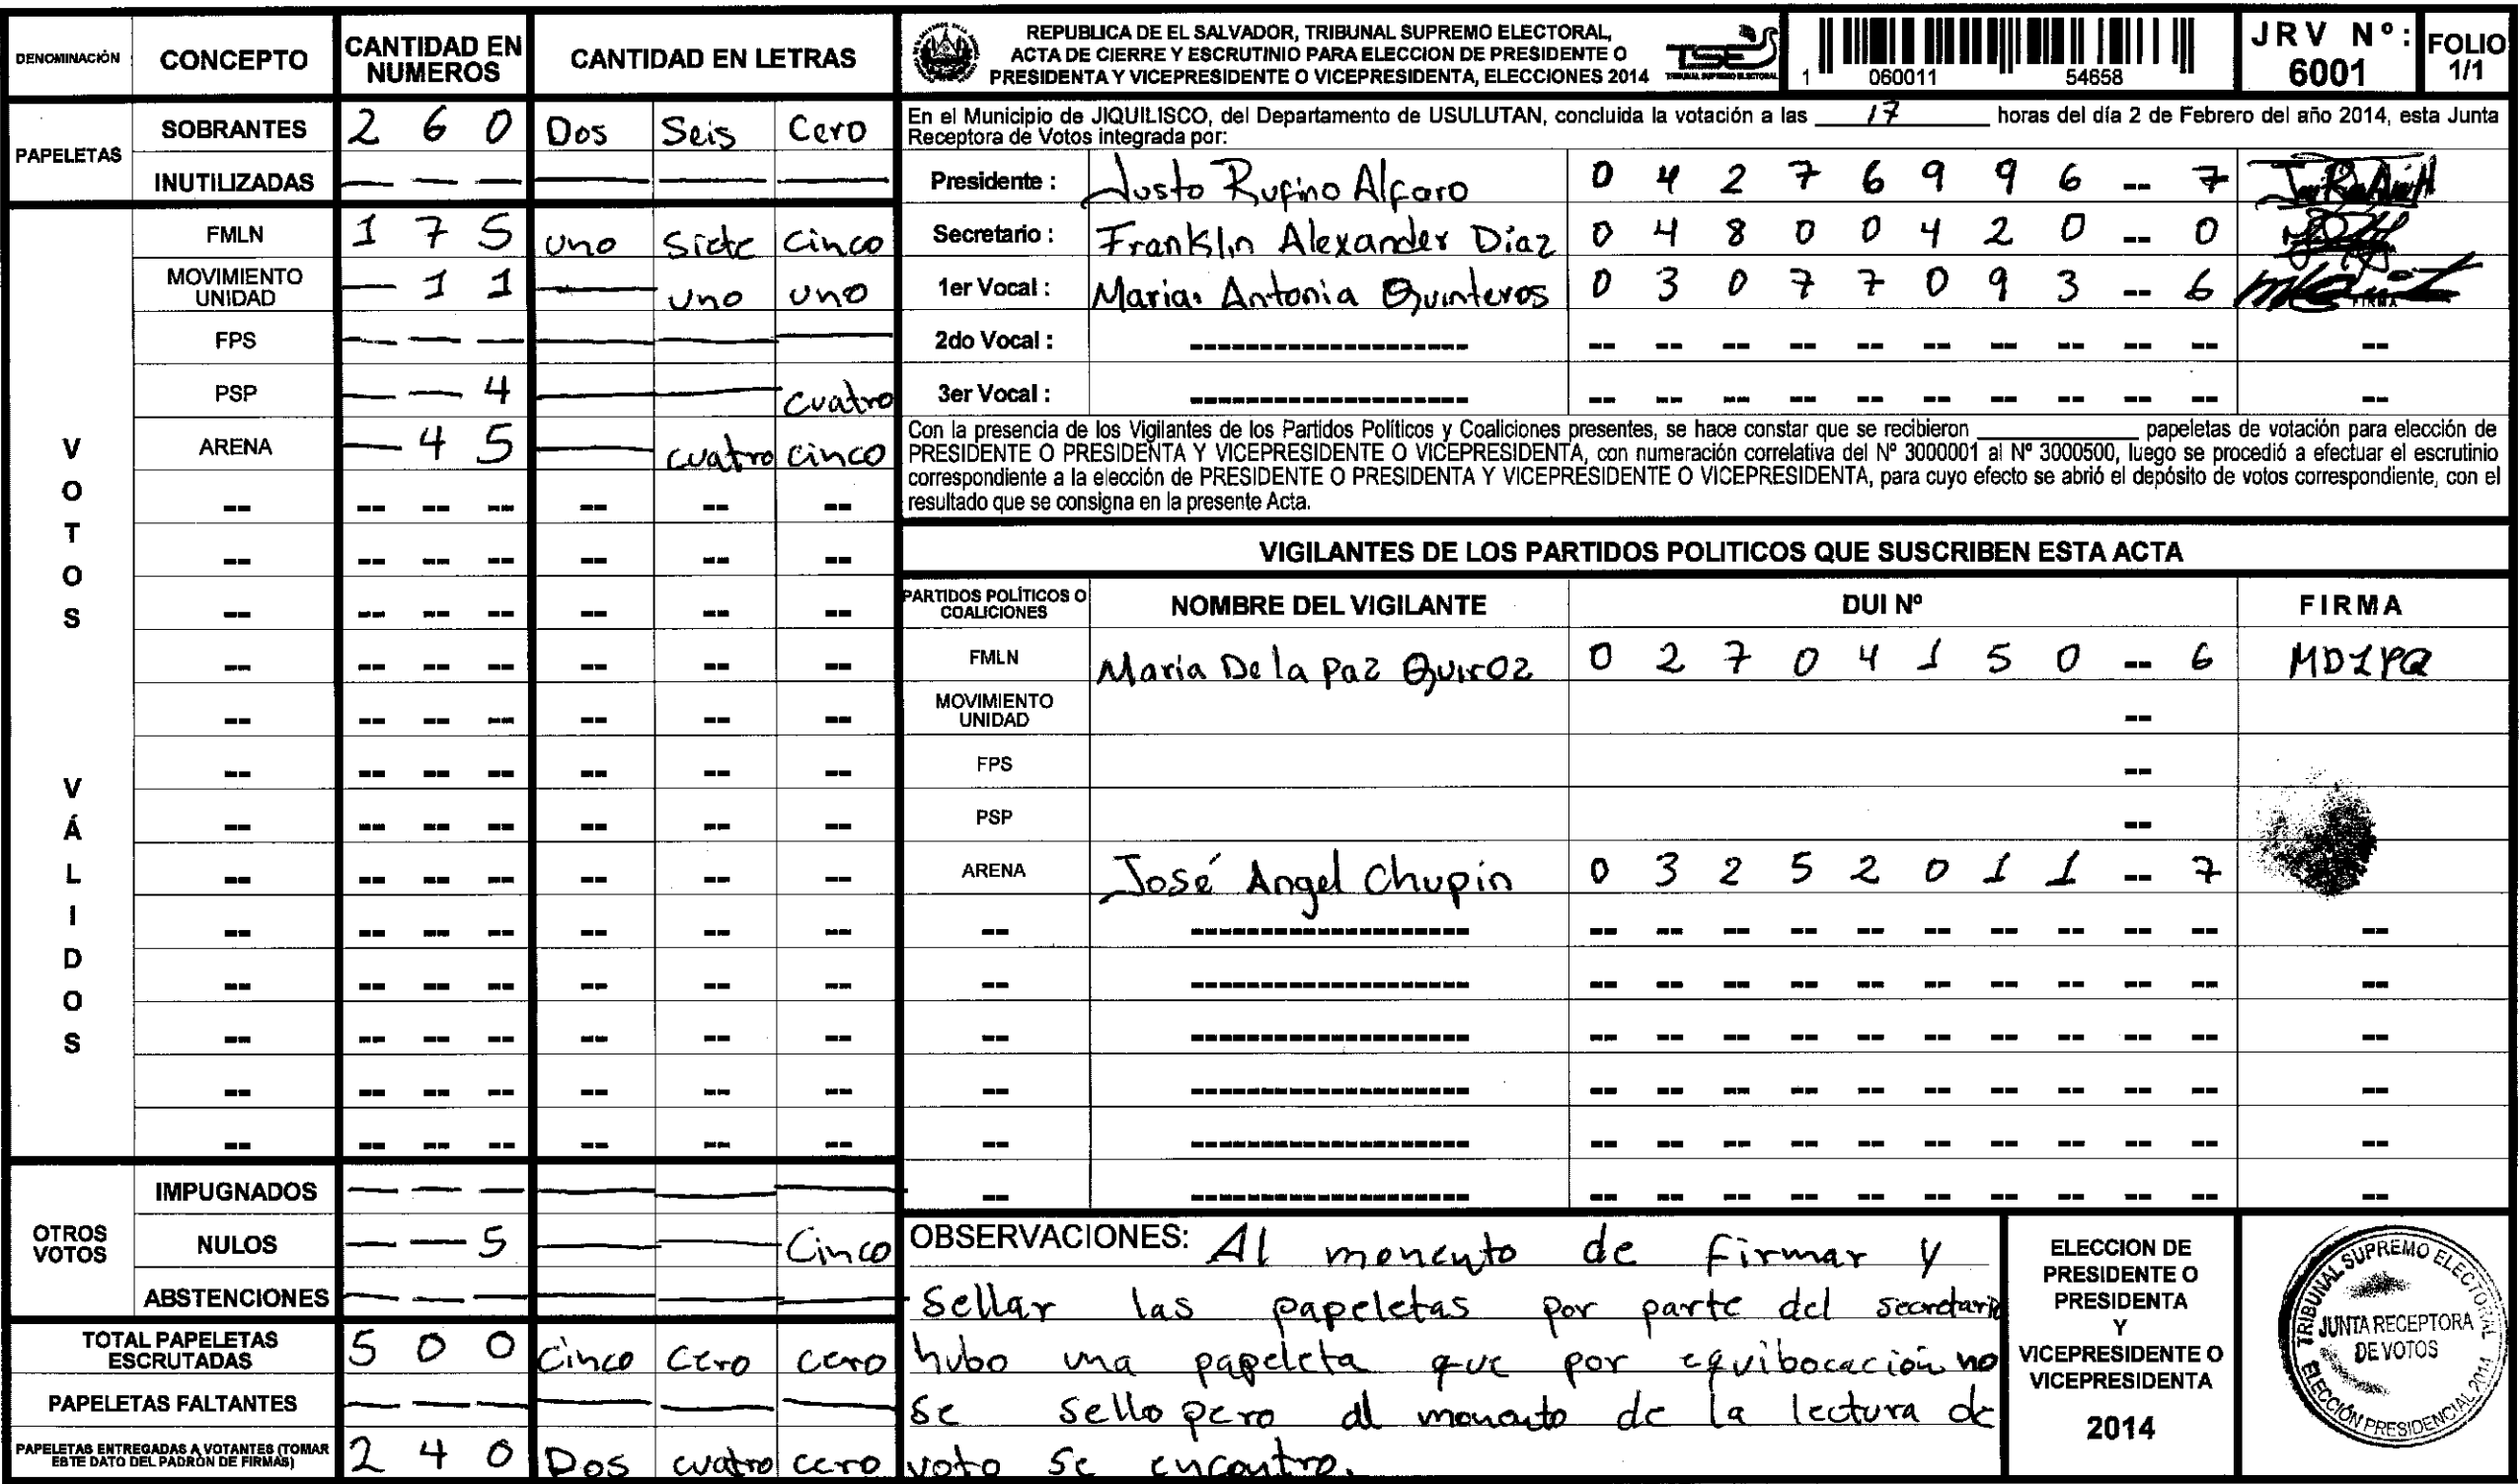 DENOMINACIÓN CONCEPTO CANTIDAD EN NUMEROS CANTIDAD EN LETRAS
PAPELETAS
SOBRANTES 2 6 0 Dos Seis Cero
INUTILIZADAS — — — — — —
VOTOS VÁLIDOS
FMLN 1 7 5 uno siete cinco
MOVIMIENTO UNIDAD — 1 1 — uno uno
FPS — — — — — —
PSP — — 4 — — cuatro
ARENA — 4 5 — cuatro cinco
-- -- -- -- -- -- --
-- -- -- -- -- -- --
-- -- -- -- -- -- --
-- -- -- -- -- -- --
-- -- -- -- -- -- --
-- -- -- -- -- -- --
-- -- -- -- -- -- --
-- -- -- -- -- -- --
-- -- -- -- -- -- --
-- -- -- -- -- -- --
-- -- -- -- -- -- --
-- -- -- -- -- -- --
-- -- -- -- -- -- --
OTROS VOTOS
IMPUGNADOS — — — — — —
NULOS — — 5 — — Cinco
ABSTENCIONES — — — — — —
TOTAL PAPELETAS ESCRUTADAS 5 0 0 Cinco Cero cero
PAPELETAS FALTANTES — — — — — —
PAPELETAS ENTREGADAS A VOTANTES (TOMAR ESTE DATO DEL PADRÓN DE FIRMAS) 2 4 0 Dos cuatro cero
REPUBLICA DE EL SALVADOR, TRIBUNAL SUPREMO ELECTORAL,
ACTA DE CIERRE Y ESCRUTINIO PARA ELECCION DE PRESIDENTE O
PRESIDENTA Y VICEPRESIDENTE O VICEPRESIDENTA, ELECCIONES 2014
TSE
TRIBUNAL SUPREMO ELECTORAL
1 060011 54658
JRV Nº: 6001
FOLIO 1/1
En el Municipio de JIQUILISCO, del Departamento de USULUTAN, concluida la votación a las 17 horas del día 2 de Febrero del año 2014, esta Junta
Receptora de Votos integrada por:
Presidente : Justo Rufino Alfaro 0 4 2 7 6 9 9 6 -- 7
Secretario : Franklin Alexander Díaz 0 4 8 0 0 4 2 0 -- 0
1er Vocal : Maria Antonia Quinteros 0 3 0 7 7 0 9 3 -- 6
FIRMA
2do Vocal : -------------------- -- -- -- -- -- -- -- -- -- -- --
3er Vocal : -------------------- -- -- -- -- -- -- -- -- -- -- --
Con la presencia de los Vigilantes de los Partidos Políticos y Coaliciones presentes, se hace constar que se recibieron ________ papeletas de votación para elección de
PRESIDENTE O PRESIDENTA Y VICEPRESIDENTE O VICEPRESIDENTA, con numeración correlativa del Nº 3000001 al Nº 3000500, luego se procedió a efectuar el escrutinio
correspondiente a la elección de PRESIDENTE O PRESIDENTA Y VICEPRESIDENTE O VICEPRESIDENTA, para cuyo efecto se abrió el depósito de votos correspondiente, con el
resultado que se consigna en la presente Acta.
VIGILANTES DE LOS PARTIDOS POLITICOS QUE SUSCRIBEN ESTA ACTA
PARTIDOS POLÍTICOS O COALICIONES NOMBRE DEL VIGILANTE DUI Nº FIRMA
FMLN Maria De la Paz Quiroz 0 2 7 0 4 1 5 0 -- 6 MDLPQ
MOVIMIENTO UNIDAD --
FPS --
PSP --
ARENA José Angel Chupin 0 3 2 5 2 0 1 1 -- 7
-- -------------------- -- -- -- -- -- -- -- -- -- -- --
-- -------------------- -- -- -- -- -- -- -- -- -- -- --
-- -------------------- -- -- -- -- -- -- -- -- -- -- --
-- -------------------- -- -- -- -- -- -- -- -- -- -- --
-- -------------------- -- -- -- -- -- -- -- -- -- -- --
-- -------------------- -- -- -- -- -- -- -- -- -- -- --
OBSERVACIONES: Al momento de firmar y
Sellar las papeletas por parte del secretario
hubo una papeleta que por equibocación no
se sello pero al momento de la lectura de
voto se encontro.
ELECCION DE
PRESIDENTE O
PRESIDENTA
Y
VICEPRESIDENTE O
VICEPRESIDENTA
2014
TRIBUNAL SUPREMO ELECTORAL
JUNTA RECEPTORA
DE VOTOS
ELECCIÓN PRESIDENCIAL 2014